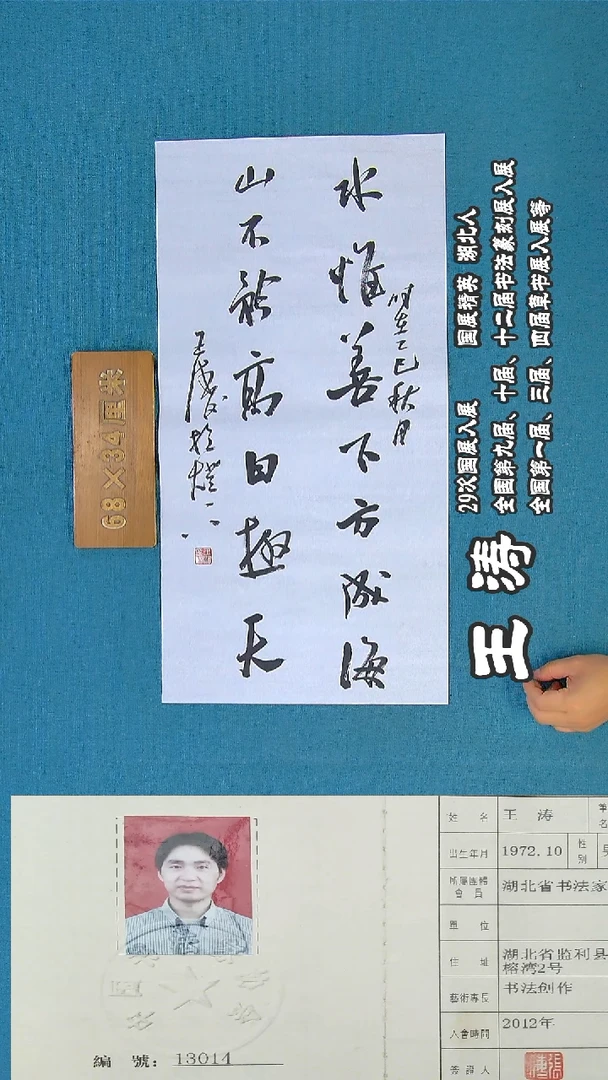 水惟善下方成海
山不矜高自極天
时在乙巳秋月
68×34厘米
王涛
29次国展入展 国展精英 湖北人
全国第九届、十届、十二届书法篆刻展入展
全国第一届、三届、四届草书展入展等
編 號: 13014
姓 名 王 涛
出生年月 1972.10 性別
所屬團體會員 湖北省书法家
單 位
住 址 湖北省监利县
榕湾2号
藝術專長 书法创作
入會時間 2012年
簽證人